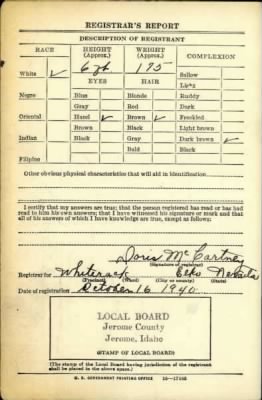 REGISTRAR'S REPORT
DESCRIPTION OF REGISTRANT
RACE HEIGHT (Approx.) WEIGHT (Approx.) COMPLEXION
White ✓ 6 ft 195 Sallow
EYES HAIR Light
Negro Blue Blonde Ruddy
Gray Red Dark
Oriental Hazel ✓ Brown ✓ Freckled
Brown Black Light brown
Indian Black Gray Dark brown ✓
Bald Black
Filipino
Other obvious physical characteristics that will aid in identification
I certify that my answers are true; that the person registered has read or has had
read to him his own answers; that I have witnessed his signature or mark and that
all of his answers of which I have knowledge are true, except as follows:
Doris McCartney
(Signature of registrar)
Registrar for Elko Nevada
(Precinct) (Ward) (City or County) (State)
Date of registration October 16 1940
LOCAL BOARD
Jerome County
Jerome, Idaho
(STAMP OF LOCAL BOARD)
(The stamp of the Local Board having jurisdiction of the registrant
shall be placed in the above space.)
U. S. GOVERNMENT PRINTING OFFICE